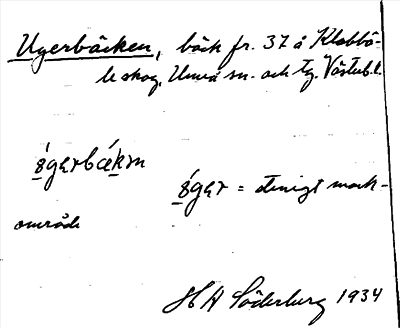 Ugerbäcken, bäck fr. 37 å Klabbö-
le skog, Umeå sn. och tg. Västerb.l.
ógərbækɱ
ógər = stenigt mark-
område
H A Söderberg 1934